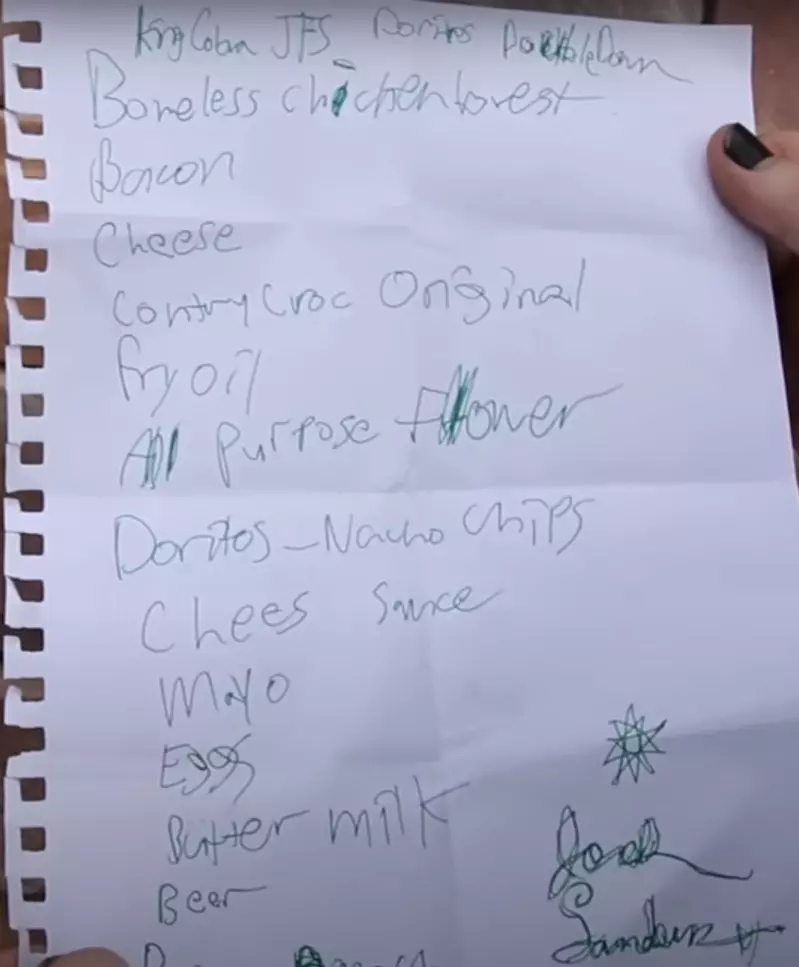 King Cobra JFS Doritos Double Down
Boneless chicken brest
Bacon
Cheese
Contry Croc Original
Fry oil
All Purpose Flower
Doritos - Nacho Chips
Chees Sauce
Mayo
Eggs
Butter milk
Beer
Josh